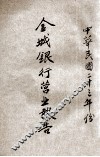 中華民國二十三年份
金城銀行營業報告